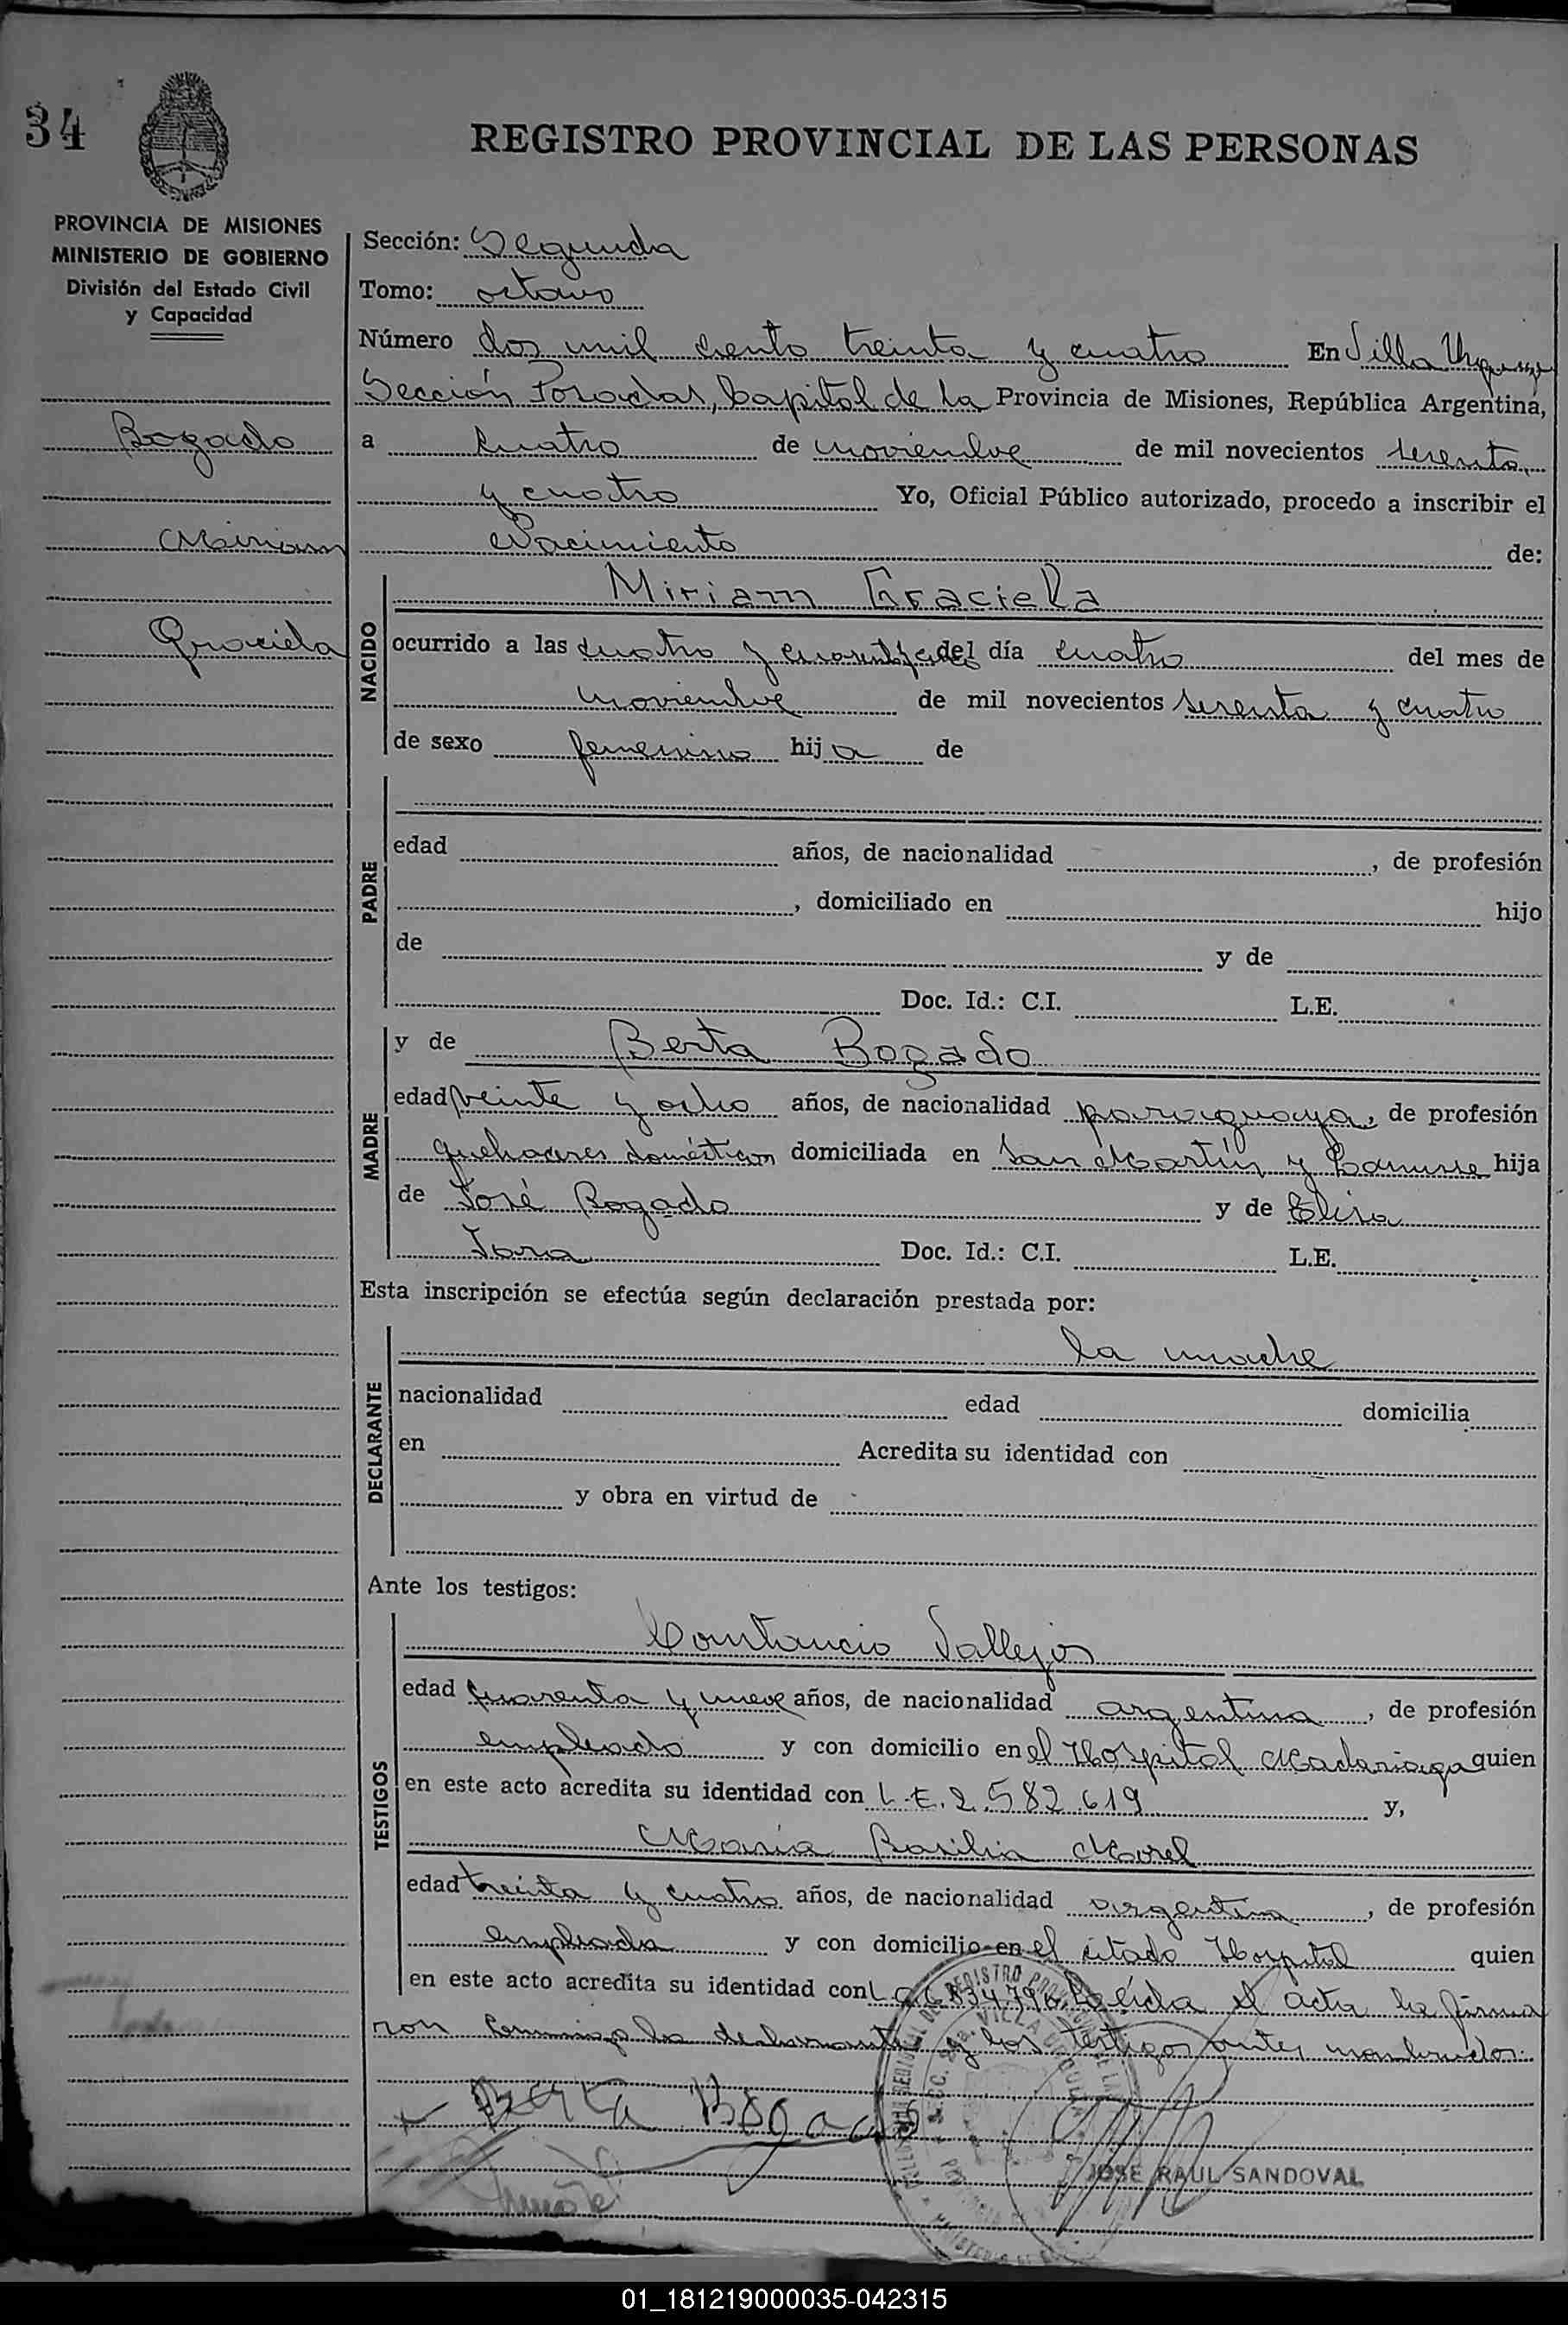 34
REGISTRO PROVINCIAL DE LAS PERSONAS
PROVINCIA DE MISIONES
MINISTERIO DE GOBIERNO
División del Estado Civil
y Capacidad
Bogado
Miriam
Graciela
Sección: Segunda
Tomo: octavo
Número dos mil ciento treinta y cuatro En Villa Urquiza
Sección Posadas, Capital de la Provincia de Misiones, República Argentina,
a cuatro de noviembre de mil novecientos sesenta
y cuatro Yo, Oficial Público autorizado, procedo a inscribir el
Nacimiento de:
NACIDO
Miriam Graciela
ocurrido a las cuatro y del día cuatro del mes de
noviembre de mil novecientos sesenta y cuatro
de sexo femenino hija de
PADRE
edad años, de nacionalidad , de profesión
, domiciliado en hijo
de y de
Doc. Id.: C.I. L.E.
MADRE
y de Berta Bogado
edad veinte y ocho años, de nacionalidad paraguaya, de profesión
quehaceres domésticos domiciliada en San Martín y Lanusse hija
de José Bogado y de Elisa
Jara Doc. Id.: C.I. L.E.
Esta inscripción se efectúa según declaración prestada por:
DECLARANTE
la madre
nacionalidad edad domicilia
en Acredita su identidad con
y obra en virtud de
Ante los testigos:
TESTIGOS
Constancio Vallejos
edad cuarenta y nueve años, de nacionalidad argentina, de profesión
empleado y con domicilio en el Hospital Madariaga quien
en este acto acredita su identidad con L.E. 2.582.619 y,
María Basilia Morel
edad treinta y cuatro años, de nacionalidad argentina, de profesión
empleada y con domicilio en el citado Hospital quien
en este acto acredita su identidad con Leída el acta la firma
ron conmigo la declarante y los testigos antes nombrados.
Berta Bogado
JOSE RAUL SANDOVAL
01_181219000035-042315